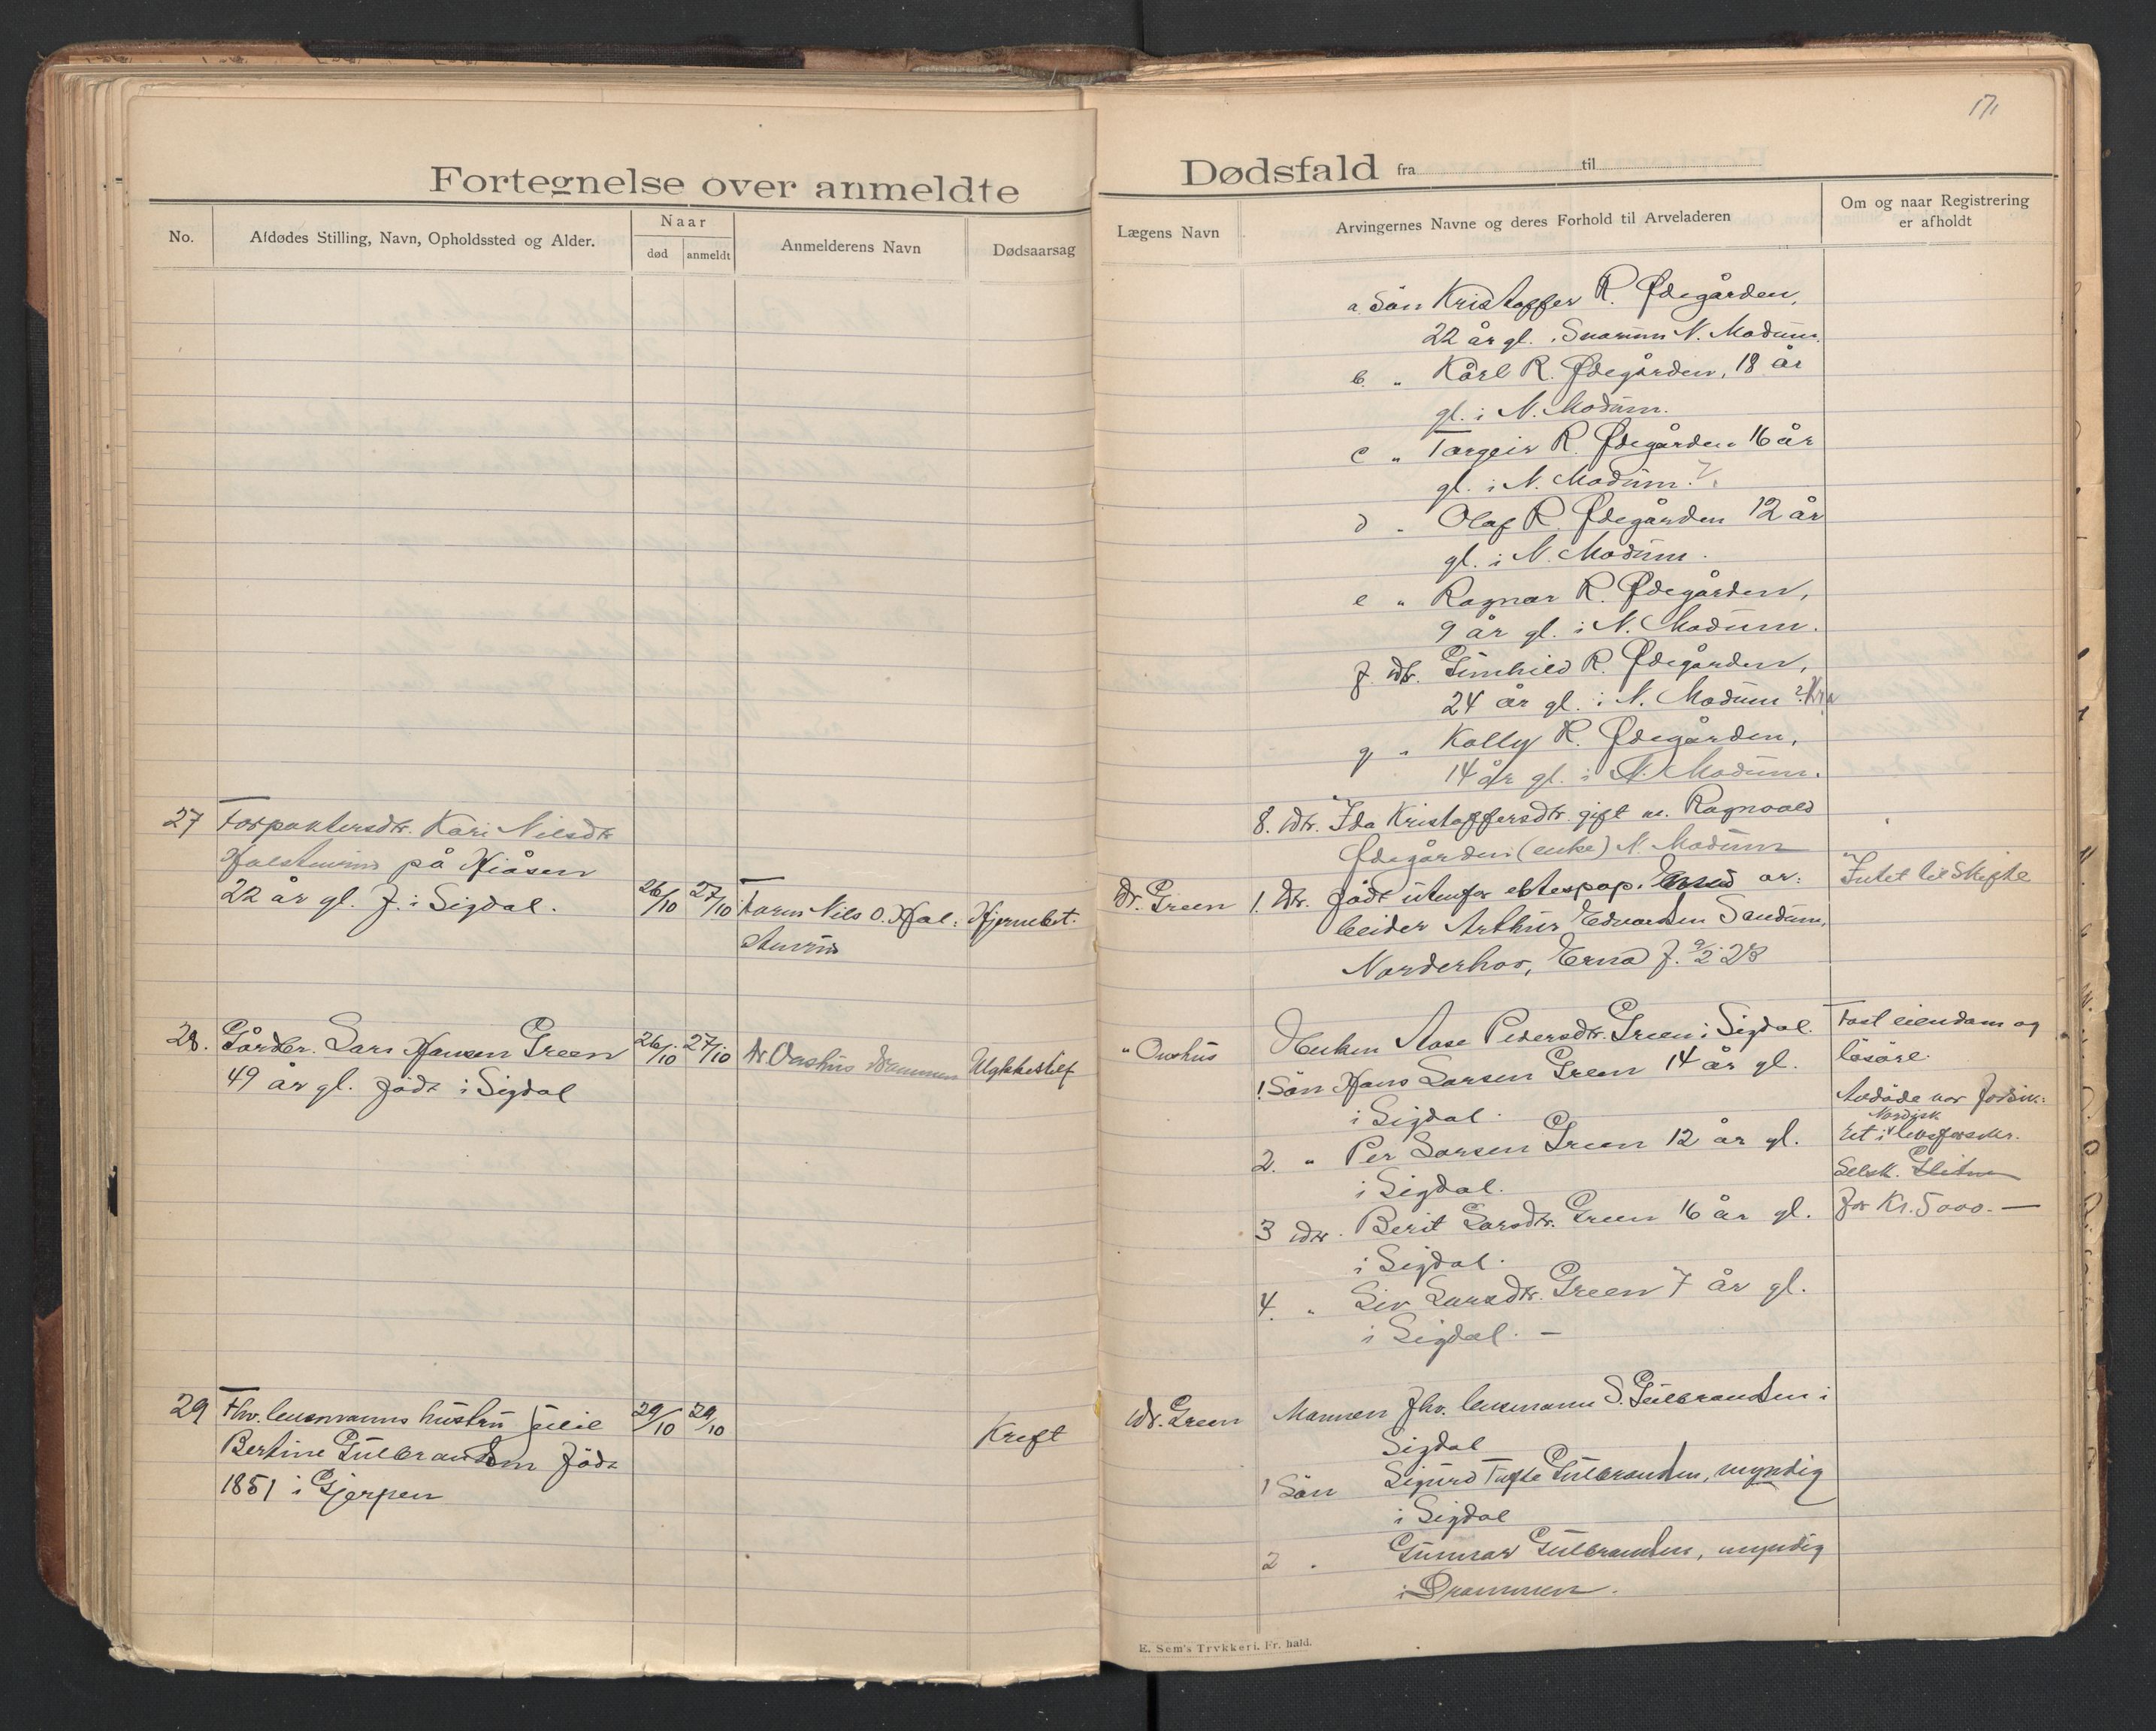 171
Fortegnelse over anmeldte
No.
Afdødes Stilling, Navn, Opholdssted og Alder.
Naar
død
anmeldt
Anmelderens Navn
Dødsaarsag
27 Forpaktersdtr. Kari Nilsdtr
på
22 år gl. f. i Sigdal.
26/10
27/10
Faren Nils O. Hal:
Hjernebet.
28. Gårdbr. Lars Hansen Green
49 år gl. født i Sigdal
26/10
27/10
Dr. Onshus Drammen
Ulykkestilf
29 Fhv. lensmanns hustru Julie
Bertine Gulbrandsen født
1851 i Gjerpen
29/10
29/10
Kreft
Dødsfald fra til
Lægens Navn
Arvingernes Navne og deres Forhold til Arveladeren
Om og naar Registrering
er afholdt
a. Sön Kristoffer R. Ødegården,
22 år gl. i Snarum N. Modum.
b. " Kårl R. Ødegården, 18 år
gl. i N. Modum.
c " Torgeir R. Ødegården 16 år
gl. i N. Modum.
d " Olaf R. Ødegården 12 år
gl. i N. Modum.
e " Ragnar R. Ødegården,
9 år gl. i N. Modum.
f. dtr. Gunhild R. Ødegården,
24 år gl. i N. Modum ? Kra
g " Kolly R. Ødegården,
14 år gl. i N. Modum.
8. dtr. Ida Kristoffersdtr. gift m. Ragnvald
Ødegården (enke) N. Modum
Dr. Green
1. Dtr. født utenfor ektespap. ar:
beider Arthur Edvardsen Sandum,
Norderhov, Erna f. 9/2 28
Intet til Skifte
" Onshus
Enken Aase Pedersdtr. Green i Sigdal.
1 Sön Hans Larsen Green 14 år gl.
i Sigdal.
2. " Per Larsen Green 12 år gl.
i Sigdal.
3 dtr. Berit Larsdtr. Green 16 år gl.
i Sigdal.
4. " Liv Larsdtr. Green 7 år gl.
i Sigdal. —
Fast eiendom og
løsøre.
Avdøde var forsik:
Nordisk
ret i livsforsikr.
Selsk.
for Kr. 5000.—
Dr. Green
Mannen fhv. lensmann S. Gulbrandsen i
Sigdal
1 Sön Sigurd Tufte Gulbrandsen, myndig
i Sigdal
2 " Gunnar Gulbrandsen, myndig
i Drammen.
E. Sem's Trykkeri. Fr. hald.